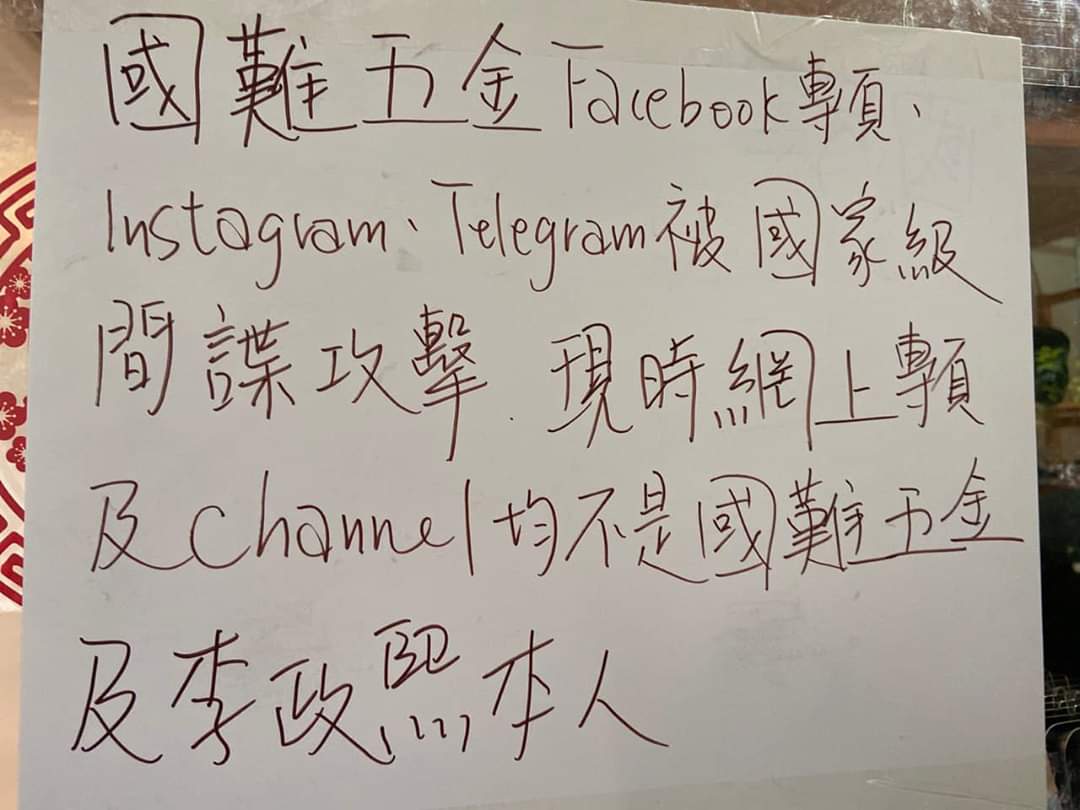 國難五金Facebook專頁、
Instagram、Telegram被國家級
間諜攻擊．現時網上專頁
及channel均不是國難五金
及李政熙本人